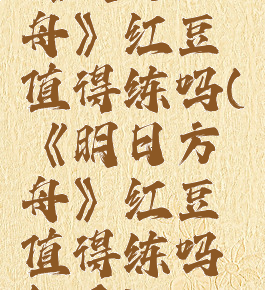 舟》红豆
值得练吗(
《明日方
舟》红豆
值得练吗